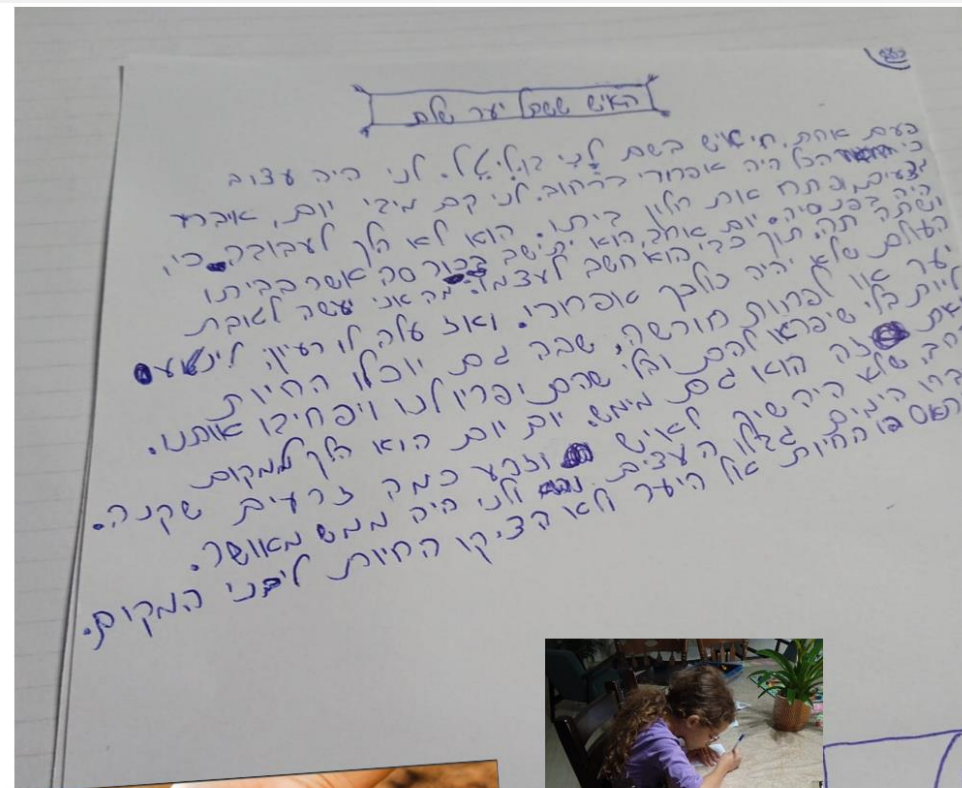 בעה
האיש ששתל יער שלם
פעם אחת, חי איש בשם לני בן ליטל. לני היה עצוב
כי הכל היה אפרורי ברחוב. לני קם מידי יום,
ופתח את חלון ביתו. הוא לא הלך לעבודה כי,
היה בפנסיה. יום אחד, הוא ישב בכורסה אשר בביתו
ושתה תה, תוך כדי הוא חשב לעצמו: מה אני יעשה לטובת
העולם שלא יהיה כולכך אפרורי. ואז עלה לו רעיון: לינטוע
יער או לפחות חורשה, שבה גם יוכלו החיות
בלי שיפריעו להם ובלי שהם יפריעו לנו ויפחידו אותנו.
את זה הוא גם מימש. יום יום הוא הלך למקום
רחב שלא היה שייך לאיש וזרע כמה זרעים שקנה.
הימים גדלו העצים ולני היה ממש מאושר.
החיות אל היער ולא הציקו החיות ליבני המקום.